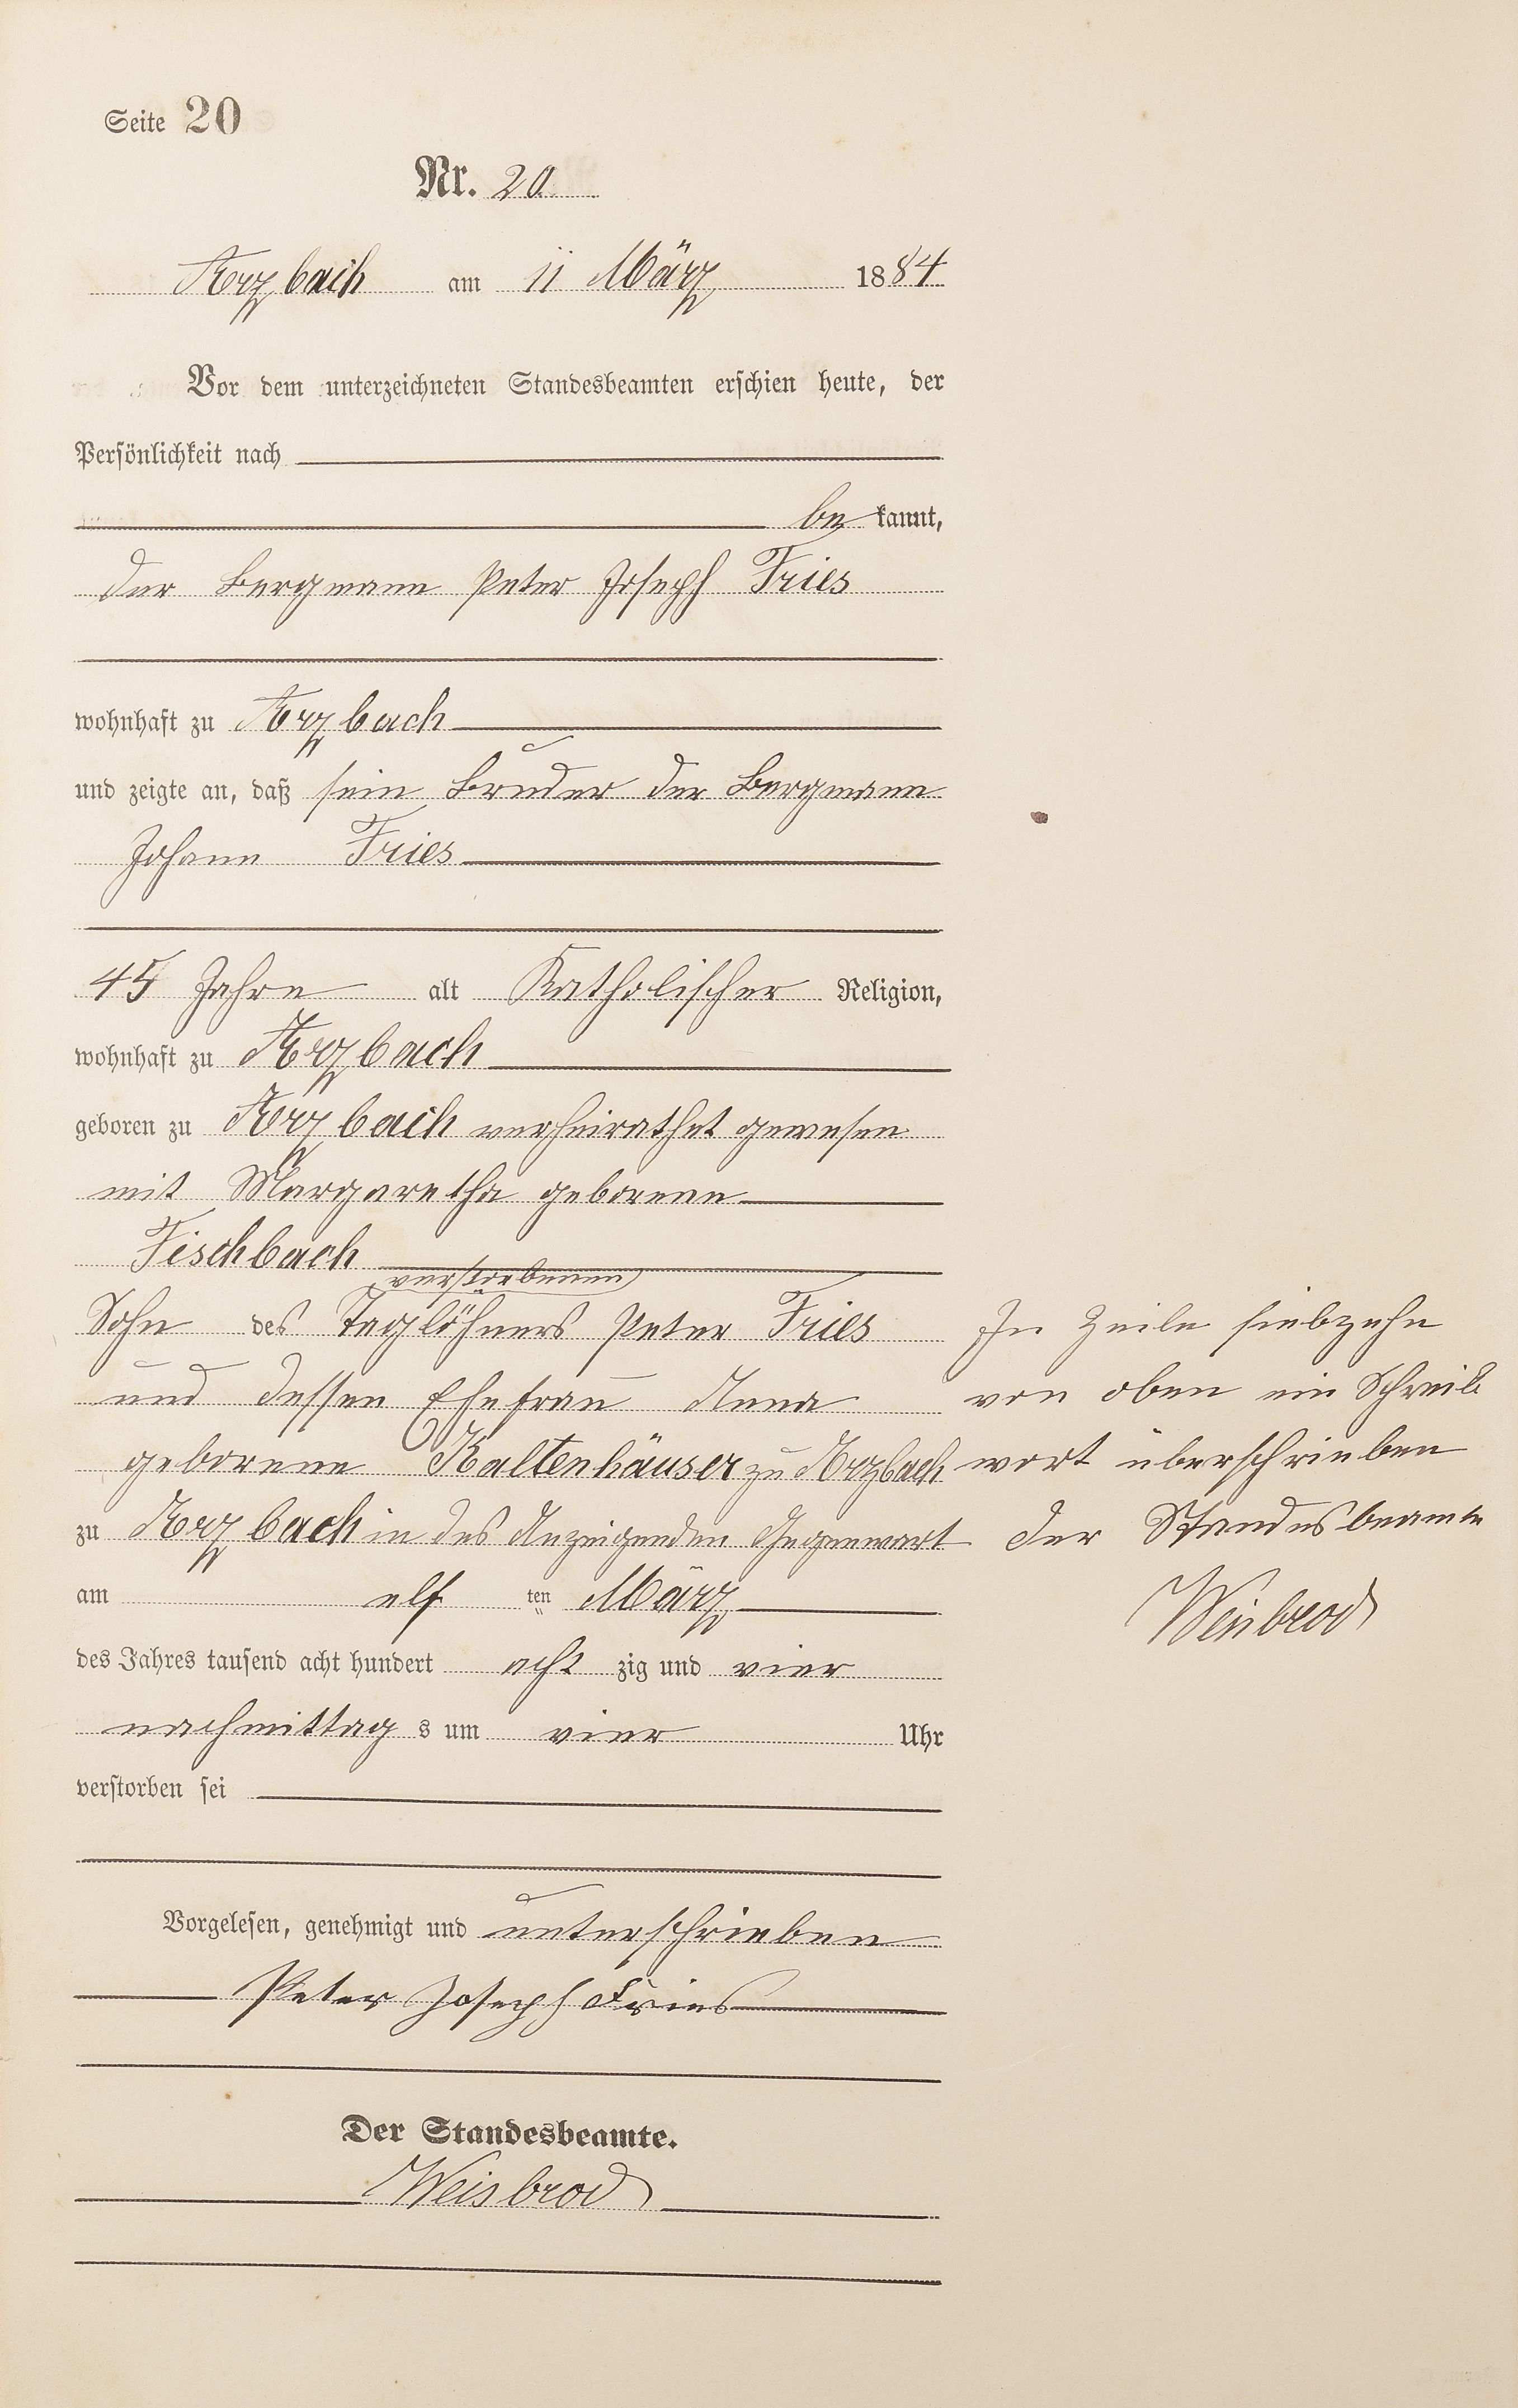 Seite 20
Nr. 20
Arzbach am 11 März 1884
Vor dem unterzeichneten Standesbeamten erschien heute, der
Persönlichkeit nach
be kannt,
der Bergmann Peter Joseph Fries
wohnhaft zu Arzbach
und zeigte an, daß sein Bruder der Bergmann
Johann Fries
45 Jahre alt Katholischer Religion,
wohnhaft zu Arzbach
geboren zu Arzbach verheirathet gewesen
mit Margaretha geborene
Fischbach
verstorbenen
Sohn des Taglöhners Peter Fries
und dessen Ehefrau Anna
geborene Kaltenhäuser zu Arzbach
zu Arzbach in des Anzeigenden Gegenwart
am elf ten März
des Jahres tausend acht hundert acht zig und vier
nachmittag s um vier Uhr
verstorben sei
Vorgelesen, genehmigt und unterschrieben
Peter Joseph Fries
Der Standesbeamte.
Weisbrod
In Zeile siebzehn
von oben ein Schreib
wort überschrieben
Der Standesbeamte
Weisbrod